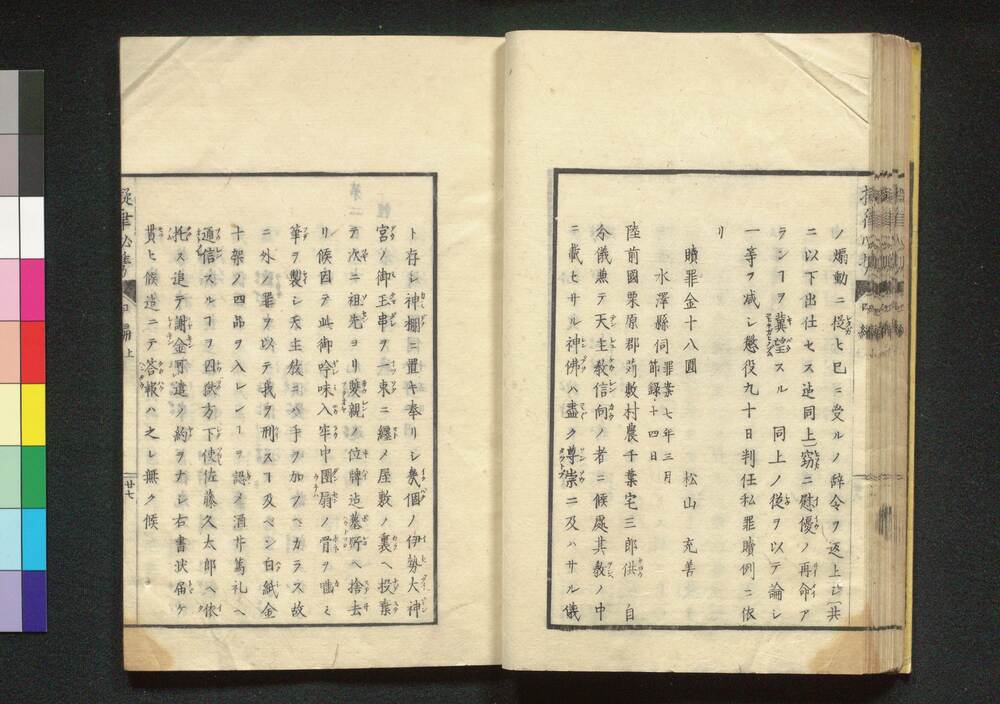 ノ煽動ニ從ヒ已ニ受ルノ辭令ヲ返上シ共
ニ以下出仕セス迯同上竊ニ慰優ノ再命ア
ランヿヲ冀望スル同上ノ從ヲ以テ論シ
一等ヲ减シ懲役九十日判任私罪贖例ニ依
リ
贖罪金十八圓 松山充善
水澤縣伺 罪案七年三月
節録・十四日
陸前國栗原郡苅敷村農千葉宅三郎供 自
分儀兼テ天主教信向ノ者ニ候處其教ノ中
ニ載ヒサル神佛ハ盡ク尊崇ニ及ハサル儀
ト存シ神棚ニ置キ奉リシ幾個ノ伊勢大神
宮ノ御玉串ヲ一束ニ纒メ屋敷ノ裏ヘ投棄
テ次ニ祖先ヨリ雙親ノ位牌迄墓所ヘ捨去
リ候因テ此御吟味入牢中團扇ノ骨ヲ
筆ヲ製シ天主教ニハ手ヲ加フヘカラス故
ニ外ノ罪ヲ以テ我ヲ刑スヿ及ヘシ白紙金
十架ノ四品ヲ入レンヿヲ認メ酒井篤礼ヘ
通信スルヿヲ囚獄方下使佐藤久太郎ヘ依
托ス追テ謝金可遣ノ約ヲナシ右書状届ケ
貰ヒ候迄ニテ答報ハ之レ無ク候
中編 上
廿七